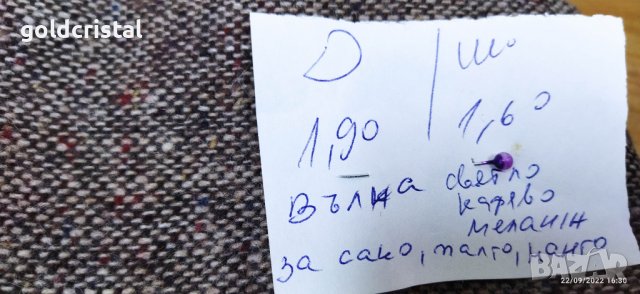 goldcristal
D / Ш.
1,90 1,60
Вълна светло
кафяво
меланж
за сако, палто, манто
BAZAR
22/09/2022 16:30